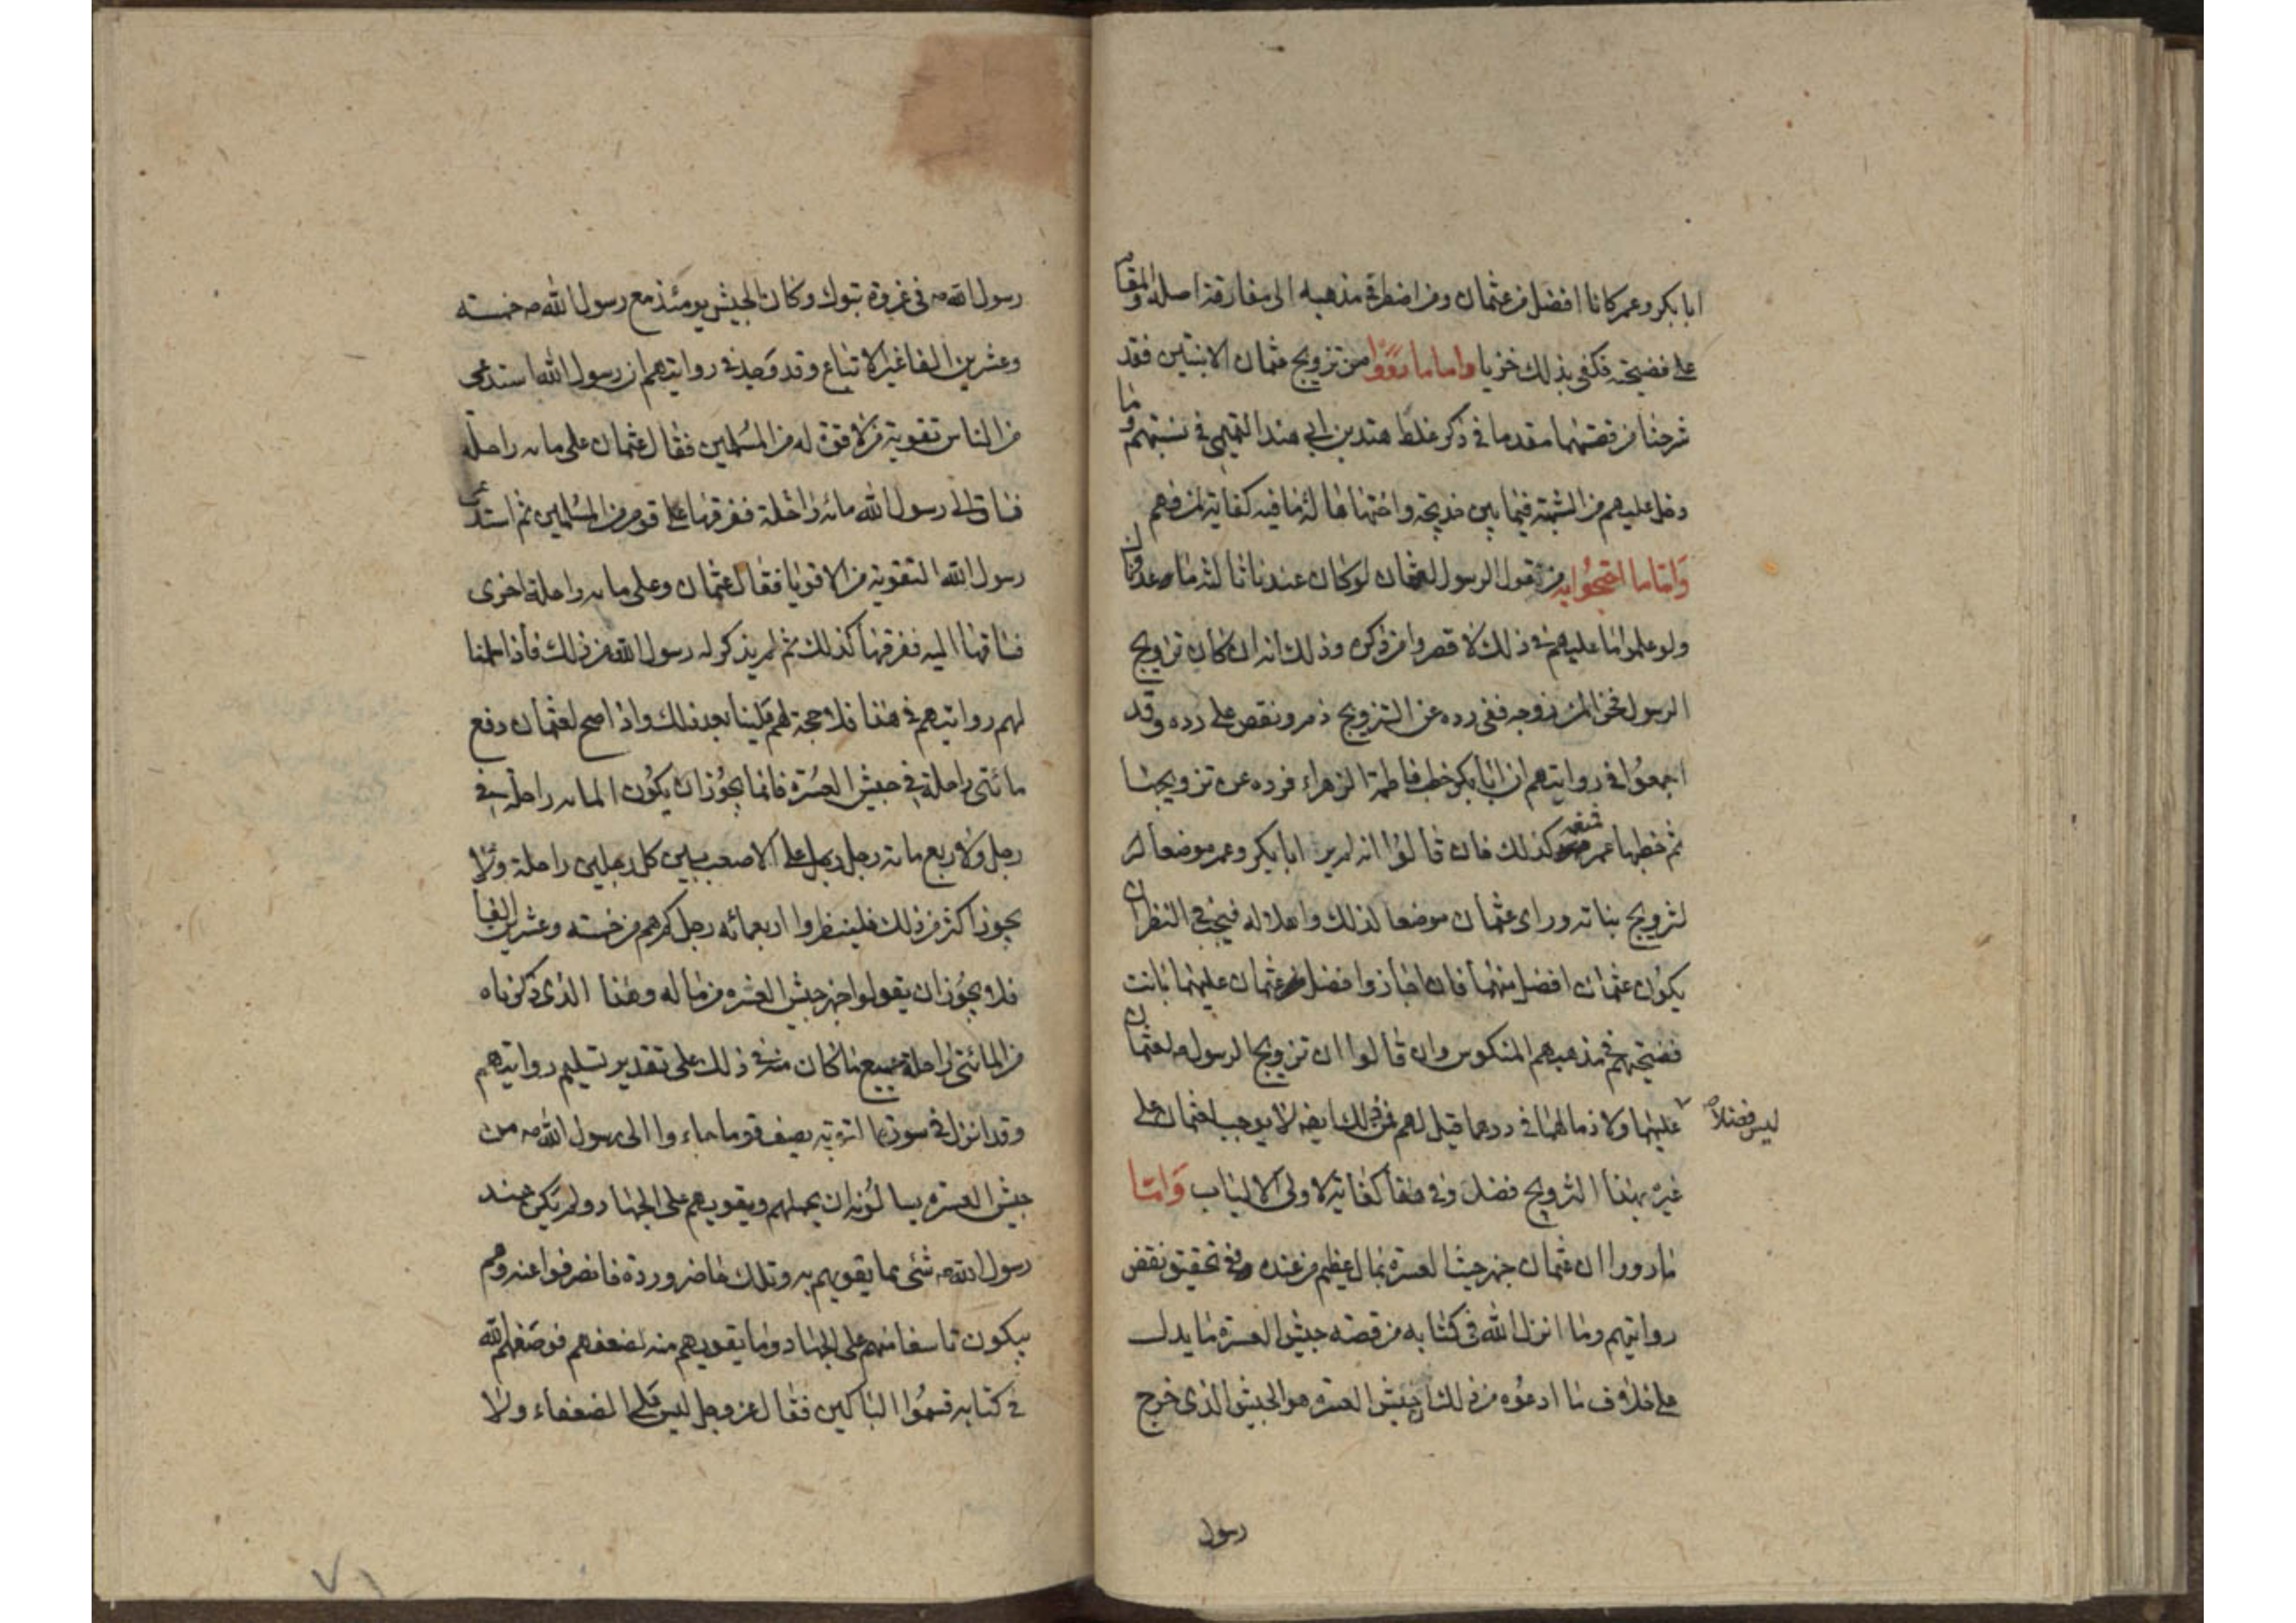 ابا بكر وعمر كانا افضل من عثمان ومن اضطره مذهبه الى مفارقة اصله والمقام
على فضيحته فكفى بذلك خزيا واما ما رووا من تزويج عثمان الابنتين فقد
شرحنا من قصتهما مقدما فى ذكر غلط هند بن ابى هند التميمى فى نسبتهم وما
دخل عليهم من الشبهة فيما بين خديجة واختها هالة ما فيه كفاية لمن فهم
وَامّا ما احتجوا به من قول الرسول لعثمان لو كان عندنا ثالثة ما عدوناك
ولو علموا ما عليهم فى ذلك لاقصروا من ذكره وذلك انه ان كان تزويج
الرسول فخرا لمن زوجه ففى رده عن التزويج ذم ونقص على رده وقد
اجمعوا فى روايتهم ان ابا بكر خطب فاطمة الزهراء فرده عن تزويجها
ثم خطبها عمر فمنعه كذلك فان قالوا انه لم ير ابا بكر وعمر موضعا
لتزويج بناته وراى عثمان موضعا لذلك واهلا له فيجب فى النظر ان
يكون عثمان افضل منهما فان اجازوا افضل عثمان عليهما بانت
فضيحتهم فى مذهبهم المنكوس وان قالوا ان تزويج الرسول لعثمان
ليس فضلاً
عليهما ولا ذما لهما فى ردهما قيل لهم فذلك ايضا لا يوجب لعثمان على
غيره بهذا التزويج فضل وفى هذا كفاية لاولى الالباب وَامّا
ما رووا ان عثمان جهز جيش العسرة بمال عظيم من عنده ففى تحقيق نقض
روايتهم وما انزل الله فى كتابه من قصة جيش العسرة ما يدل
على خلاف ما ادعوه من ذلك جيش العسرة هو الجيش الذى خرج
رسول
رسول الله فى غزوة تبوك وكان الجيش يومئذ مع رسول الله خمسة
وعشرين الفا غير الاتباع وقد وجد فى روايتهم ان رسول الله استدعى
من الناس تقوية من لا قوة له من المسلمين فقال عثمان على مائة راحلة
فساق الى رسول الله مائة راحلة ففرقها على قوم من المسلمين ثم استدعى
رسول الله التقوية من الاقويا فقال عثمان وعلى مائة راحلة اخرى
فساقها اليه ففرقها كذلك ثم لم يذكر له رسول الله من ذلك فاذا سلمنا
لهم روايتهم فى هذا فلا حجة لهم علينا بعد ذلك واذا صح لعثمان دفع
مائتى راحلة فى جيش العسرة فانما يجوز ان يكون المائة راحلة
رجل ولاربع مائة رجل رجل على الاصعب بين كل رجلين راحلة ولا
يجوز اكثر من ذلك فلينظروا اربعمائة رجل كم هم من خمسة وعشرين الفا
فلا يجوز ان يقولوا جهز جيش العسرة من ماله وهذا الذى ذكرناه
من المائتى راحلة جميع ما كان منه فى ذلك على تقدير تسليم روايتهم
وقد انزل فى سورة التوبة يصف قوما جاءوا الى رسول الله من
جيش العسرة يسالونه ان يحملهم ويقويهم على الجهاد ولم يكن عند
رسول الله شئ مما يقويهم به وتلك حاضر وردة فانصرفوا عنه وهم
يبكون تاسفا منهم على الجهاد وما يقويهم منه لضعفهم فوصفهم الله
فى كتابه فسموا البناكين فقال عز وجل ليس على الضعفاء ولا